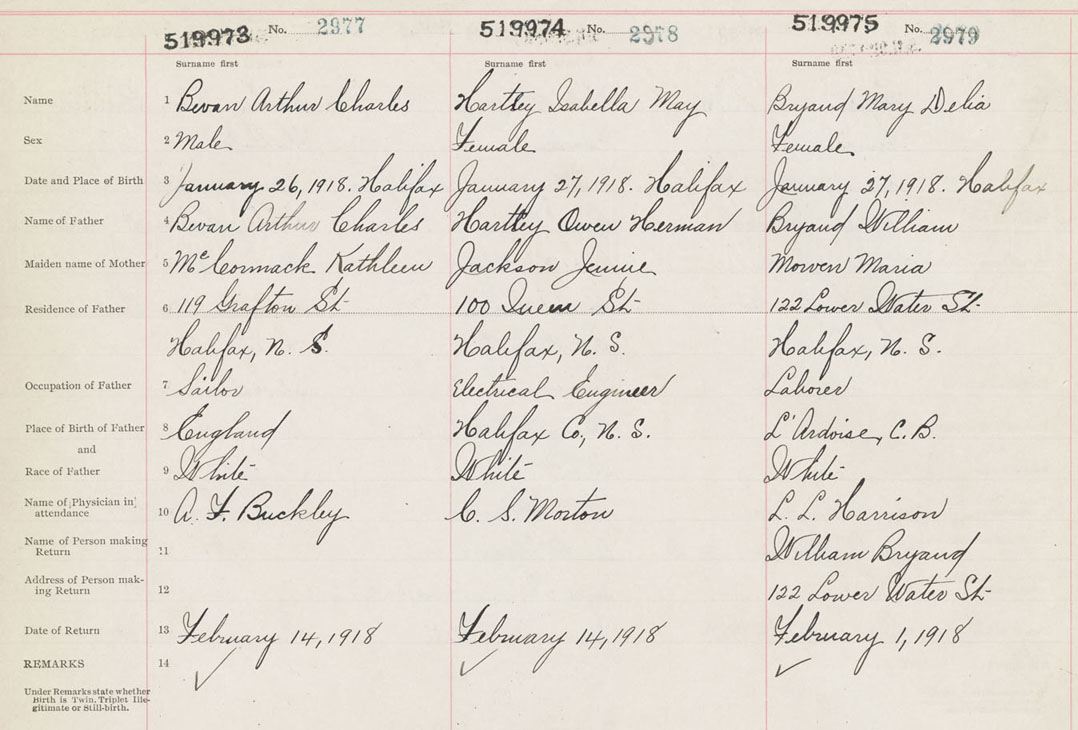 519973 No. 2977 519974 No. 2978 519975 No. 2979
Surname first Surname first Surname first
Name 1 Bevan Arthur Charles Hartley Isabella May Bryand Mary Delia
Sex 2 Male Female Female
Date and Place of Birth 3 January 26, 1918. Halifax January 27, 1918. Halifax January 27, 1918. Halifax
Name of Father 4 Bevan Arthur Charles Hartley Owen Herman Bryand William
Maiden name of Mother 5 McCormack Kathleen Jackson Jennie Mowen Maria
Residence of Father 6 119 Grafton St 100 Queen St 122 Lower Water St
Halifax, N. S. Halifax, N. S. Halifax, N. S.
Occupation of Father 7 Sailor Electrical Engineer Laborer
Place of Birth of Father 8 England Halifax Co, N. S. L'Ardoise, C.B.
and
Race of Father 9 White White White
Name of Physician in attendance 10 A. F. Buckley C. S. Morton L. L. Harrison
Name of Person making Return 11 William Bryand
Address of Person mak-
ing Return 12 122 Lower Water St
Date of Return 13 February 14, 1918 February 14, 1918 February 1, 1918
REMARKS 14 ✓ ✓ ✓
Under Remarks state whether
Birth is Twin. Triplet Ille-
gitimate or Still-birth.